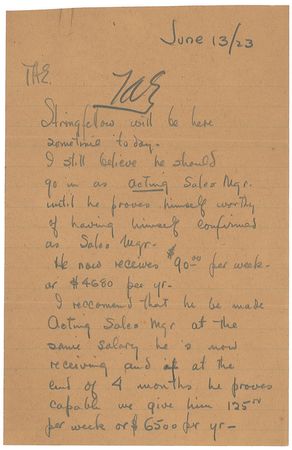 June 13/23
TAE.
TAE
Stringfellow will be here
sometime today.
I still believe he should
go in as acting Sales Mgr.
until he proves himself worthy
of having himself confirmed
as Sales Mgr.
He now receives $90.00 per week-
or $4680 per yr-
I reccomend that he be made
Acting Sales Mgr at the
same salary he is now
receiving and if at the
end of 4 months he proves
capable we give him 125.00
per week or $6500 per yr-